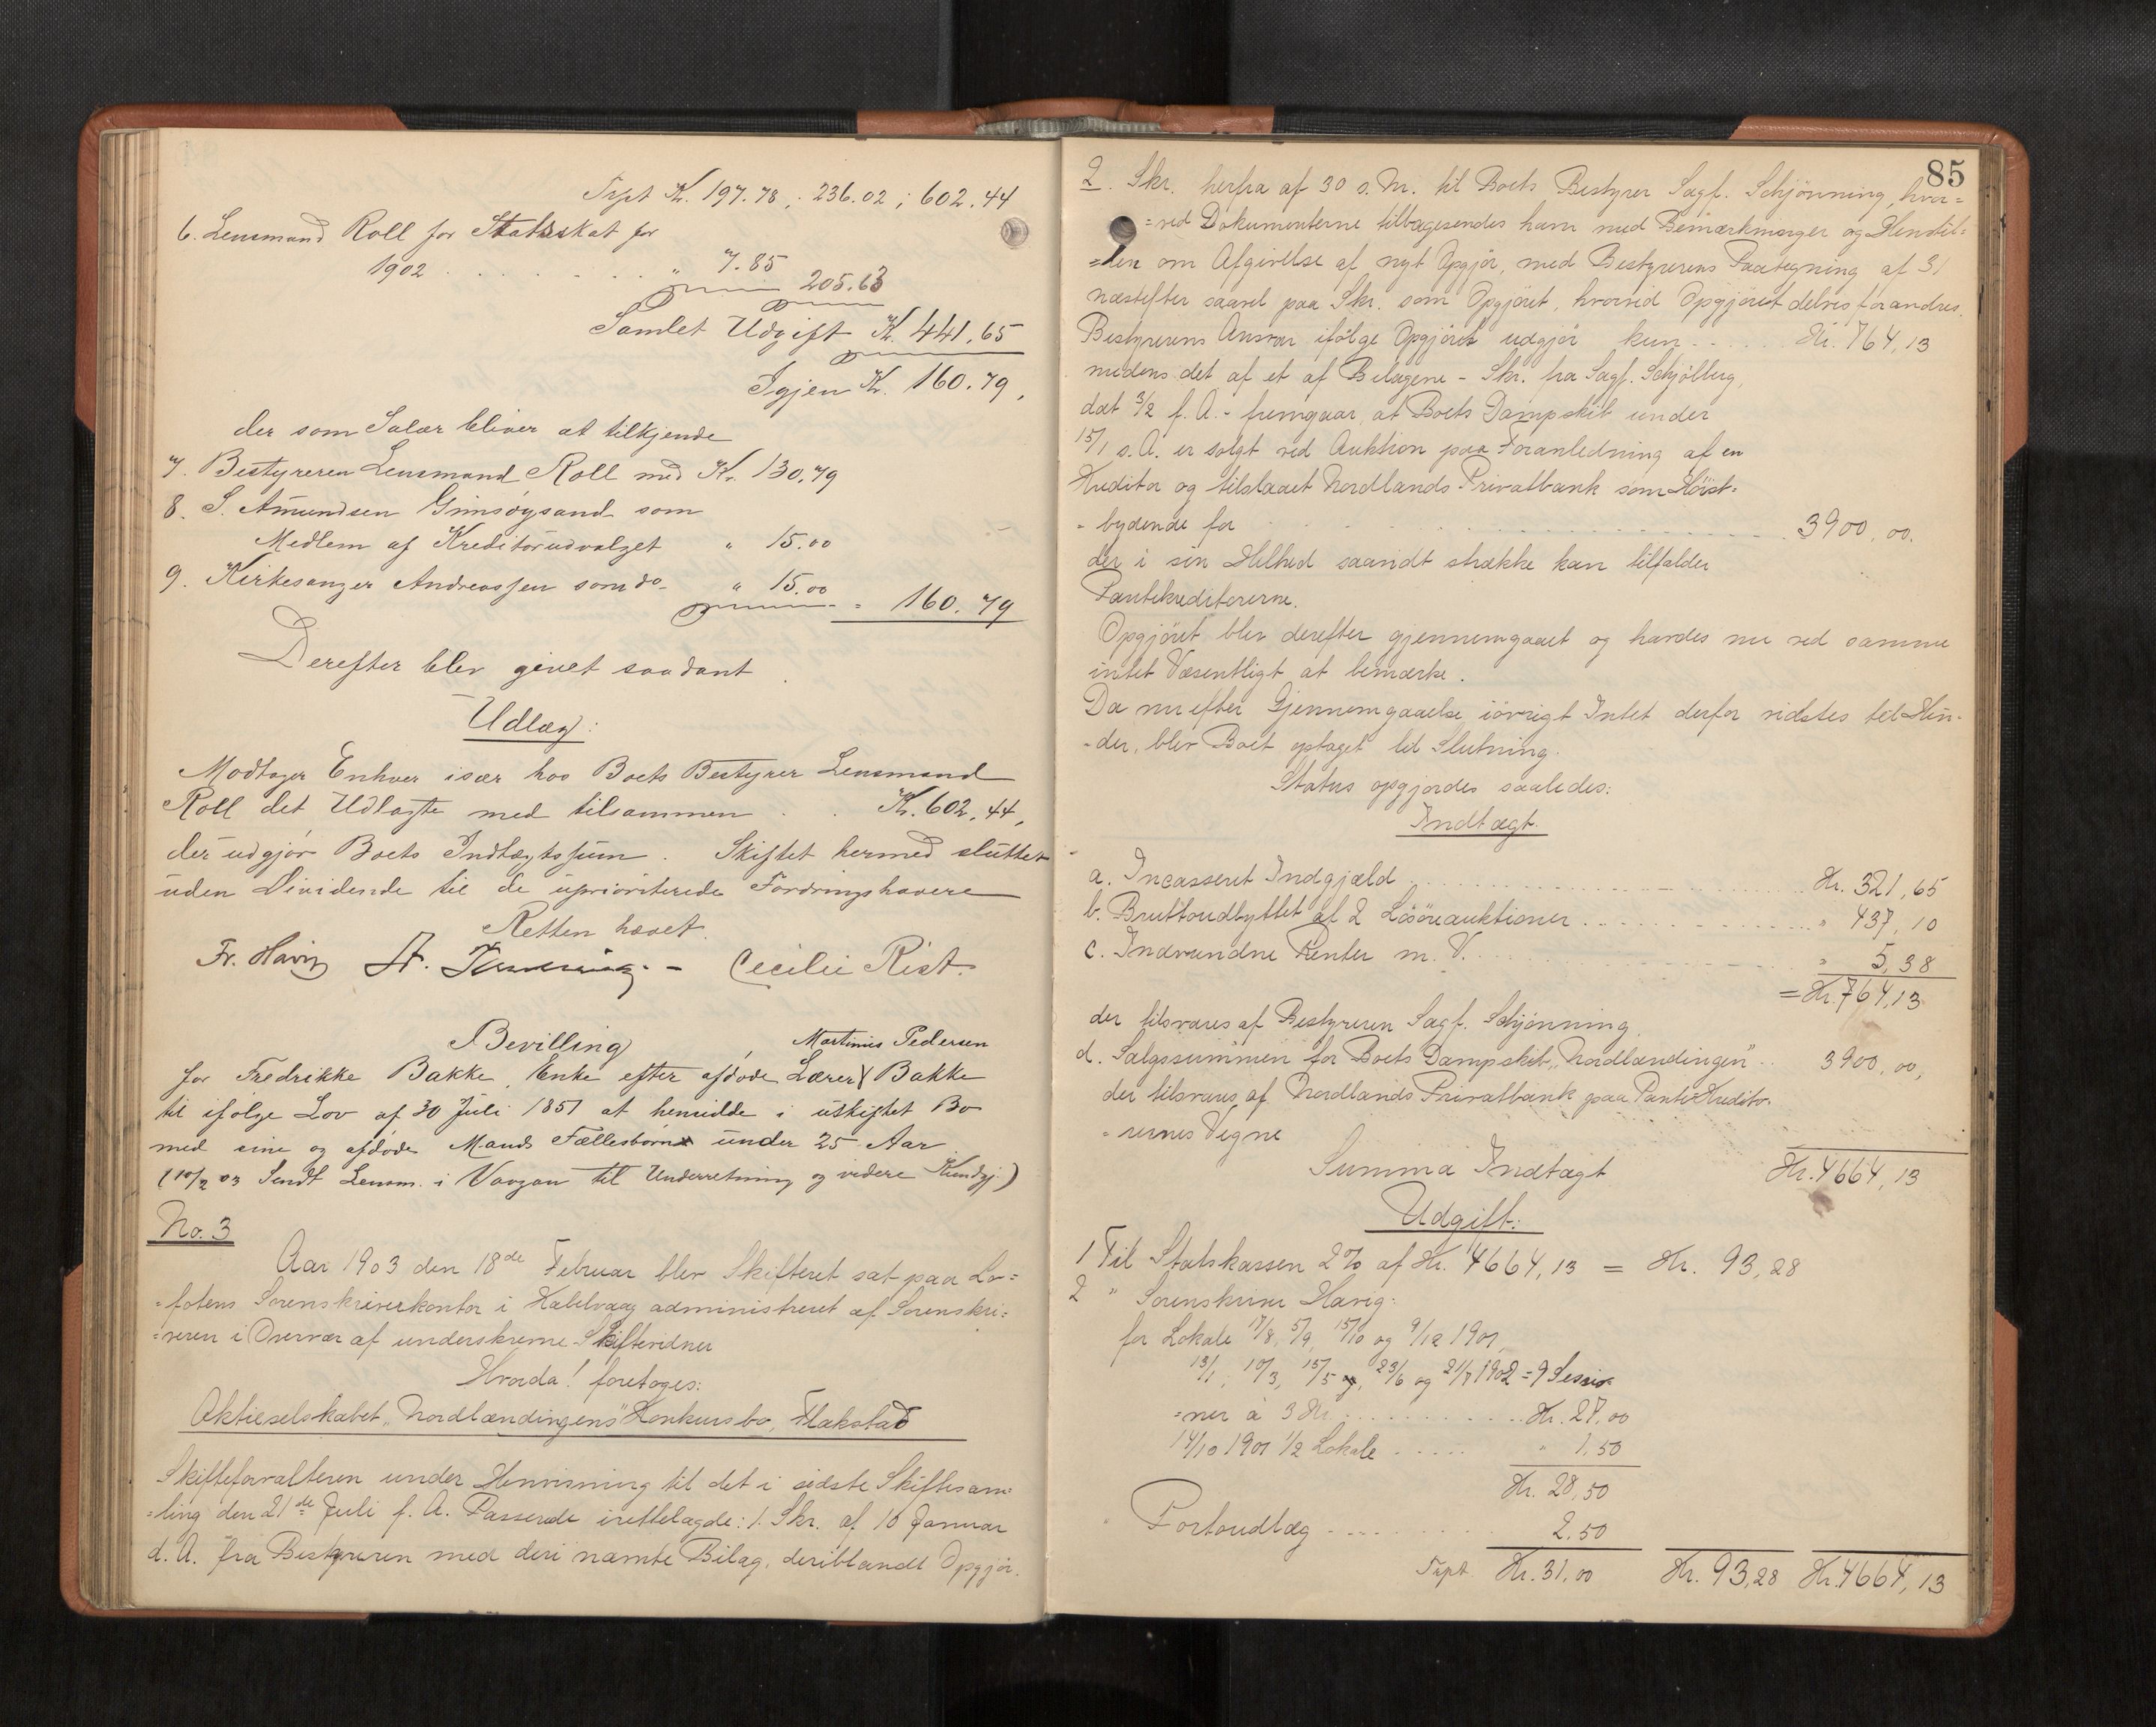 Trpt Kr. 197.78 ; 236.02 ; 602.44
6. Lensmand Roll for Statsskat for
1902 . . . . . . . . " 7.85
205.63
Samlet Udgift Kr. 441,65
Igjen Kr. 160.79,
der som Salær bliver at tilkjende
7. Bestyreren Lensmand Roll med Kr. 130,79
8. S. Amundsen Gimsøysand som
Medlem af Kreditorudvalget " 15.00
9. Kirkesanger Andreassen som do " 15.00
= 160.79
Derefter blev givet saadant
Udlæg:
Modtager Enhver især hos Boets Bestyrer Lensmand
Roll det Udlagte med tilsammen . . Kr. 602,44,
der udgjør Boets Indtægtssum. Skiftet hermed sluttet
uden Dividende til de uprioriterede Fordringshavere
Retten hævet.
Fr. Havig Cecilie Rist.
Bevilling
Martinus Pedersen
for Fredrikke Bakke, Enke efter afdøde Lærer Bakke
til ifølge Lov af 30 Juli 1851 at hensidde i uskiftet Bo
med sine og afdøde Mands Fællesbørn under 25 Aar
(10/2 03 Sendt Lensm. i Vaagan til Underretning og videre Kundgj.)
No. 3
Aar 1903 den 18de Februar blev Skifteret sat paa Lo=
=fotens Sorenskriverkontor i Kabelvaag administreret af Sorenskri=
=veren i Overvær af underskrevne Skiftevidner
Hvorda! foretoges:
Aktieselskabet "Nordlændingens" Konkursbo, Flakstad
Skifteforvalteren under Henvisning til det i sidste Skiftesam=
=ling den 21de Juli f. A. Passerede irettelagde: 1. Skr. af 16 Januar
d. A. fra Bestyreren med deri nævnte Bilag, deriblandt Opgjør.
85
2. Skr. herfra af 30 s. M. til Boets Bestyrer Sagf. Schjønning, hvor=
=ved Dokumenterne tilbagesendes ham med Bemærkninger og Henstil=
=len om Afgivelse af nyt Opgjør, med Bestyrerens Paategning af 31
næstefter saavel paa Skr. som Opgjøret, hvorved Opgjøret delvis forandres.
Bestyrerens Ansvar ifølge Opgjøret udgjør kun . . . . . Kr. 764,13
medens det af et af Bilagene - Skr. fra Sagf. Schjølberg,
dat 3/2 f. A. - fremgaar, at Boets Dampskib under
15/1 s. A. er solgt ved Auktion paa Foranledning af en
Kreditor og tilslaaet Nordlands Privatbank som Høist=
=bydende for . . . . . . 3900,00.
der i sin Helhed saavidt strække kan tilfalder
Pantekreditorerne.
Opgjøret blev derefter gjennemgaaet og havdes nu ved samme
intet Væsentligt at bemærke.
Da nu efter Gjennemgaaelse iøvrigt Intet derfor vidstes til Hin-
-der, blev Boet optaget til Slutning.
Status opgjordes saaledes:
Indtægt.
a. Incasseret Indgjæld . . . . . . Kr. 321,65
b. Bruttoudbyttet af 2 Løsøreauktioner . . . . . . " 437,10
c. Indvundne Renter m. V. . . . . . " 5,38
= Kr. 764,13
der tilsvares af Bestyreren Sagf. Schjønning.
d. Salgssummen for Boets Dampskib "Nordlændingen" . . 3900,00,
der tilsvares af Nordlands Privatbank paa Pante-Kredito-
=rernes Vegne
Summa Indtægt Kr. 4664,13
Udgift:
1 Til Statskassen 2% af Kr. 4664,13 = Kr. 93,28
2 " Sorenskriver Havig:
for Lokale 17/8, 5/9, 15/10 og 9/12 1901,
13/1, 10/3, 15/5, 23/6 og 21/7 1902 = 9 Sessio-
=ner à 3 Kr. . . . . . Kr. 27,00
14/10 1901 1/2 Lokale . . . . . " 1,50
Kr. 28,50
Portoudlæg . . . . . 2,50
Trpt Kr. 31,00 Kr. 93,28 Kr. 4664,13